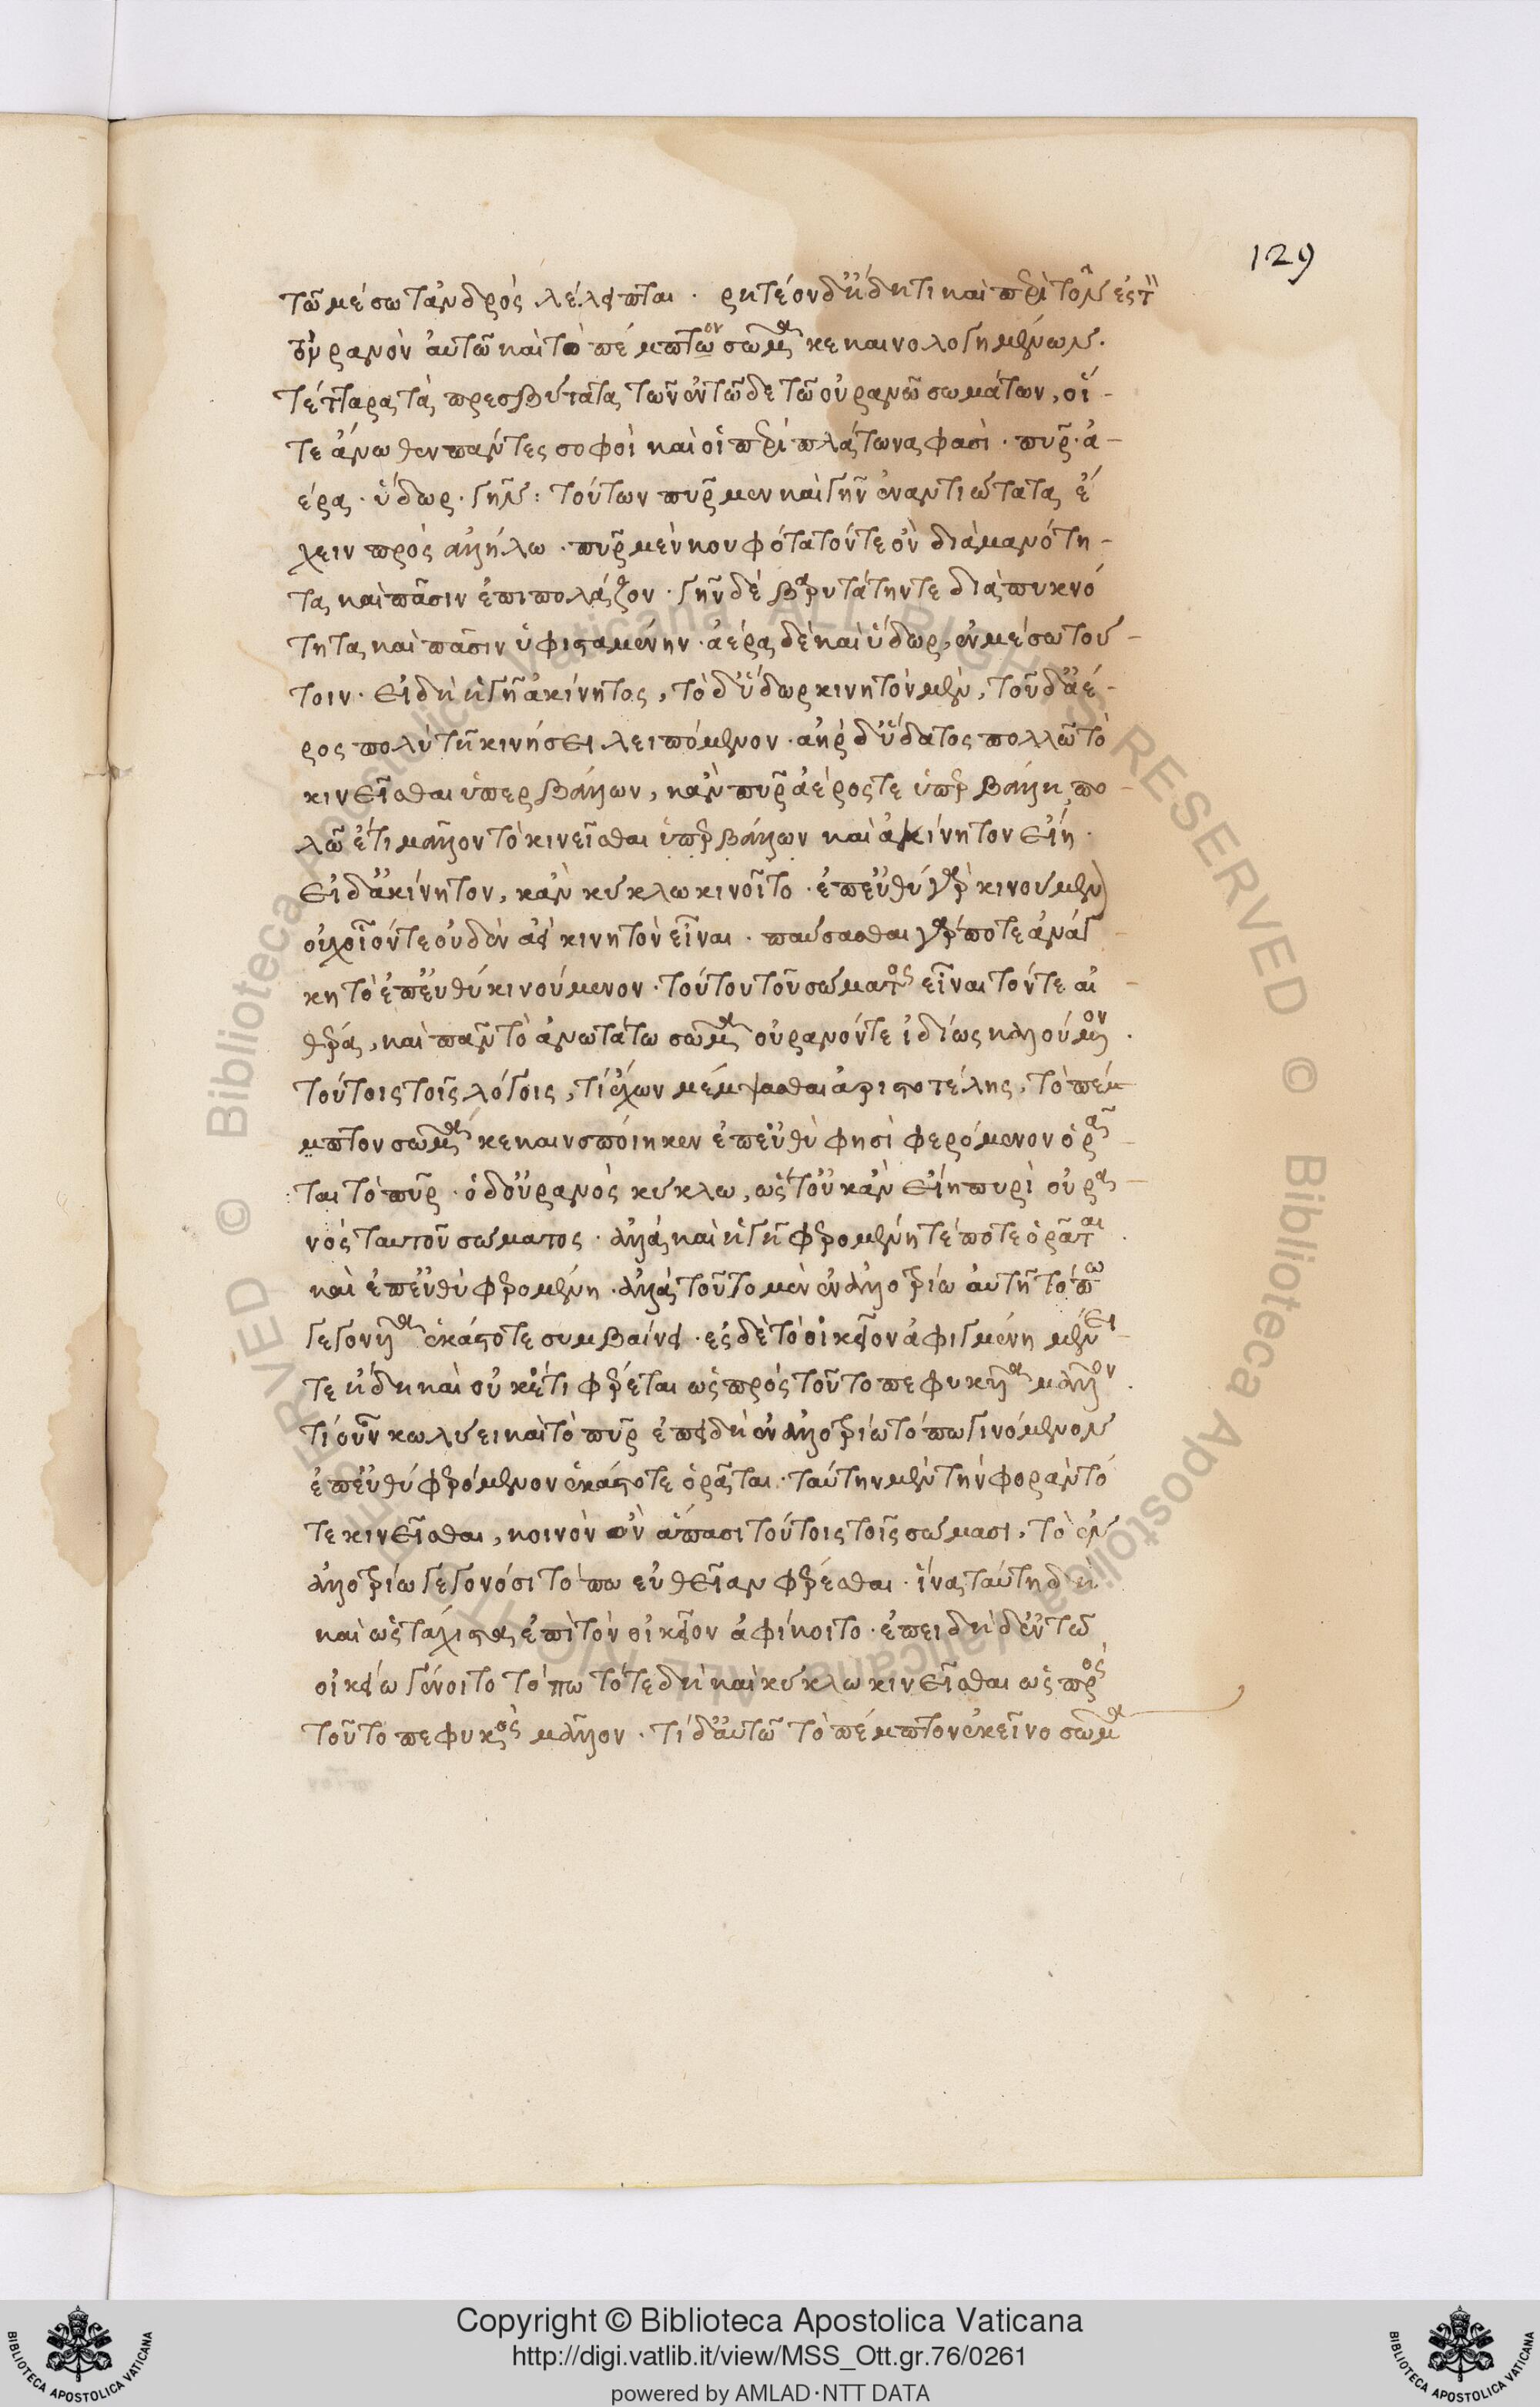 129
τῶ μέσω τἀνδρὸς λέλειπται . ρητέον δ' ἤδη τι καὶ περὶ τῶν ἐς τ̀
οὐρανὸν αὐτῶ καὶ τὸ πέμπτον σῶμα κεκαινολογημένων.
τέτταρα τὰ πρεσβύτατα τῶν ἐν τῶδε τῶ οὐρανῶ σωμάτων, οἵ -
τε ἄνωθεν πάντες σοφοὶ καὶ οἱ περὶ πλάτωνα φασὶ . πῦρ . ἀ -
έρα . ὕδωρ . γῆν : τούτων πῦρ μεν καὶ γῆν ἐναντιώτατα ἔ
χειν πρὸς ἀλλήλω . πῦρ μὲν κουφότατόν τε ὂν διὰ μανότη -
τα καὶ πᾶσιν ἐπιπολάζον . γῆν δὲ βαρυτάτην τε διὰ πυκνό
τητα καὶ πᾶσιν ὑφισταμένην . ἀέρα δὲ καὶ ὕδωρ, ἐν μέσω τού -
τοιν . εἰ δὴ ἡ γῆ ἀκίνητος, τὸ δ' ὕδωρ κινητὸν μὲν, τοῦ δ' ἀέ -
ρος πολὺ τῆ κινήσει λειπόμενον . ἀὴρ δ' ὕδατος πολλῶ τὸ
κινεῖσθαι ὑπερβάλλων, κἂν πῦρ ἀέρος τε ὑπερβάλλη πο -
λῶ ἔτι μᾶλλον τὸ κινεῖσθαι ὑπερβάλλων καὶ ἀκίνητον εἴη .
εἰ δ' ἀκίνητον, κἂν κύκλω κινοῖτο . ἐπ' εὐθὺ γὰρ κινούμεν
οὐχ οἷόν τε οὐδὲν ἀεὶ κινητὸν εἶναι . παύσασθαι γάρ ποτε ἀνάγ -
κη τὸ ἐπ' εὐθὺ κινούμενον . τούτου τοῦ σώματος εἶναι τόν τε αἰ -
θέρα, καὶ πᾶν τὸ ἀνωτάτω σῶμα οὐρανόν τε ἰδίως καλούμενον .
τούτοις τοῖς λόγοις, τί ἔχων μέμψασθαι ἀριστοτέλης, τὸ πέμ
μπτον σῶμα κεκαινοπόιηκεν ἐπ' εὐθὺ φησὶ φερόμενον ὁρᾶ -
ται τὸ πῦρ . ὁ δ' οὐρανὸς κύκλω, ὥστ' οὐκ ἂν εἴη πυρὶ οὐρα -
νός ταυτοῦ σώματος . ἀλλὰ καὶ ἡ γῆ φερομένη τέ ποτε ὁρᾶται .
καὶ ἐπ' εὐθὺ φερομένη . ἀλλὰ τοῦτο μὲν ἐν ἀλλοτρίω αὐτῆ τόπω
γεγονυῖα ἑκάστοτε συμβαίνει . ἐς δὲ τὸ οἰκεῖον ἀφιγμένη μένει -
τε ἤδη καὶ οὐκέτι φέρεται ὡς πρὸς τοῦτο πεφυκυῖα μᾶλλον .
τί οὖν κωλύει καὶ τὸ πῦρ ἐπειδὴ ἐν ἀλλοτρίω τόπω γινόμενον
ἐπ' εὐθὺ φερόμενον ἑκάστοτε ὁρᾶται . ταύτην μὲν τὴν φορὰν τό
τε κινεῖσθαι, κοινὸν ὂν ἅπασι τούτοις τοῖς σώμασι, τὸ ἐν
ἀλλοτρίω γεγονόσι τόπω εὐθεῖαν φέρεσθαι . ἵνα ταύτη δὴ
καὶ ὡς τάχιστα ἐπὶ τὸν οἰκεῖον ἀφίκοιτο . ἐπειδὴ δ' ἐν τῶ
οἰκείω γένοιτο τόπω τότε δὴ καὶ κύκλω κινεῖσθαι ὡς πρὸς
τοῦτο πεφυκὸς μᾶλλον . τί δ' αὐτῶ τὸ πέμπτον ἐκεῖνο σῶμα
Copyright © Biblioteca Apostolica Vaticana
http://digi.vatlib.it/view/MSS_Ott.gr.76/0261
powered by AMLAD·NTT DATA